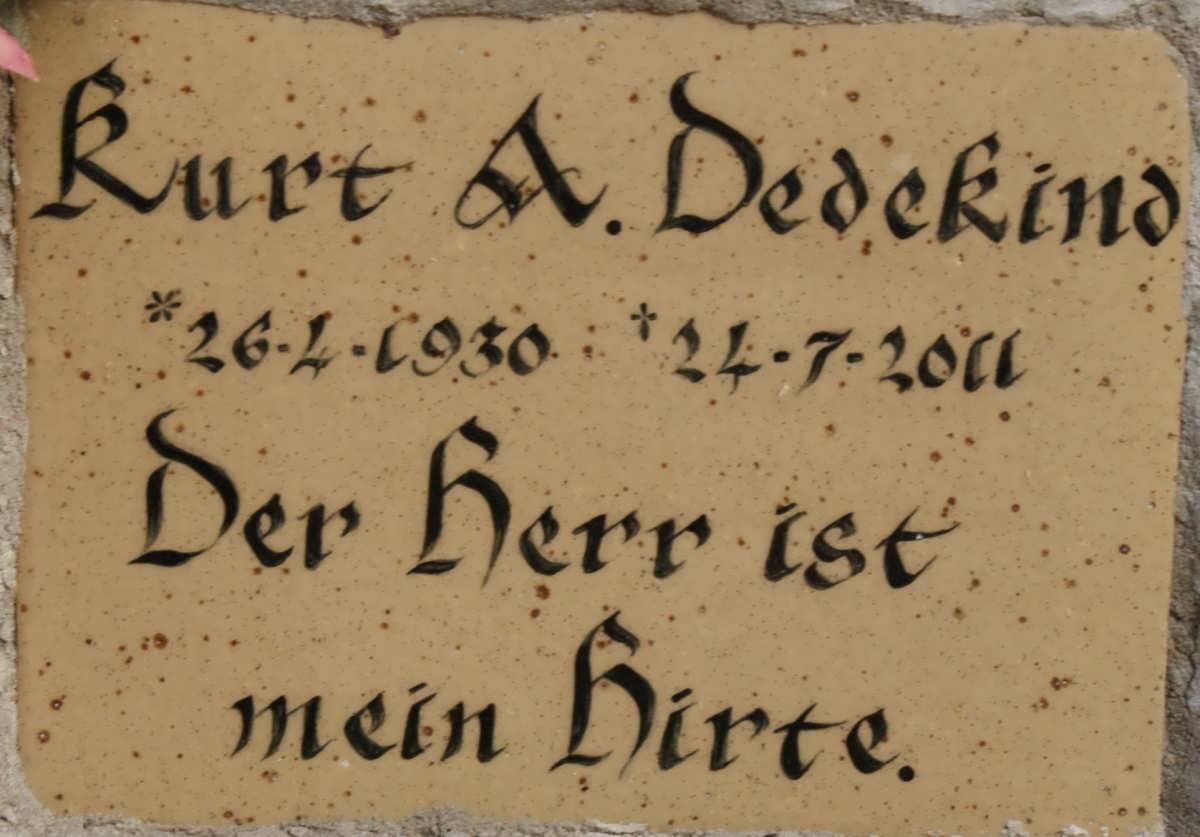 Kurt A. Dedekind
*26·4·1930 †24·7·2011
Der Herr ist
mein Hirte.